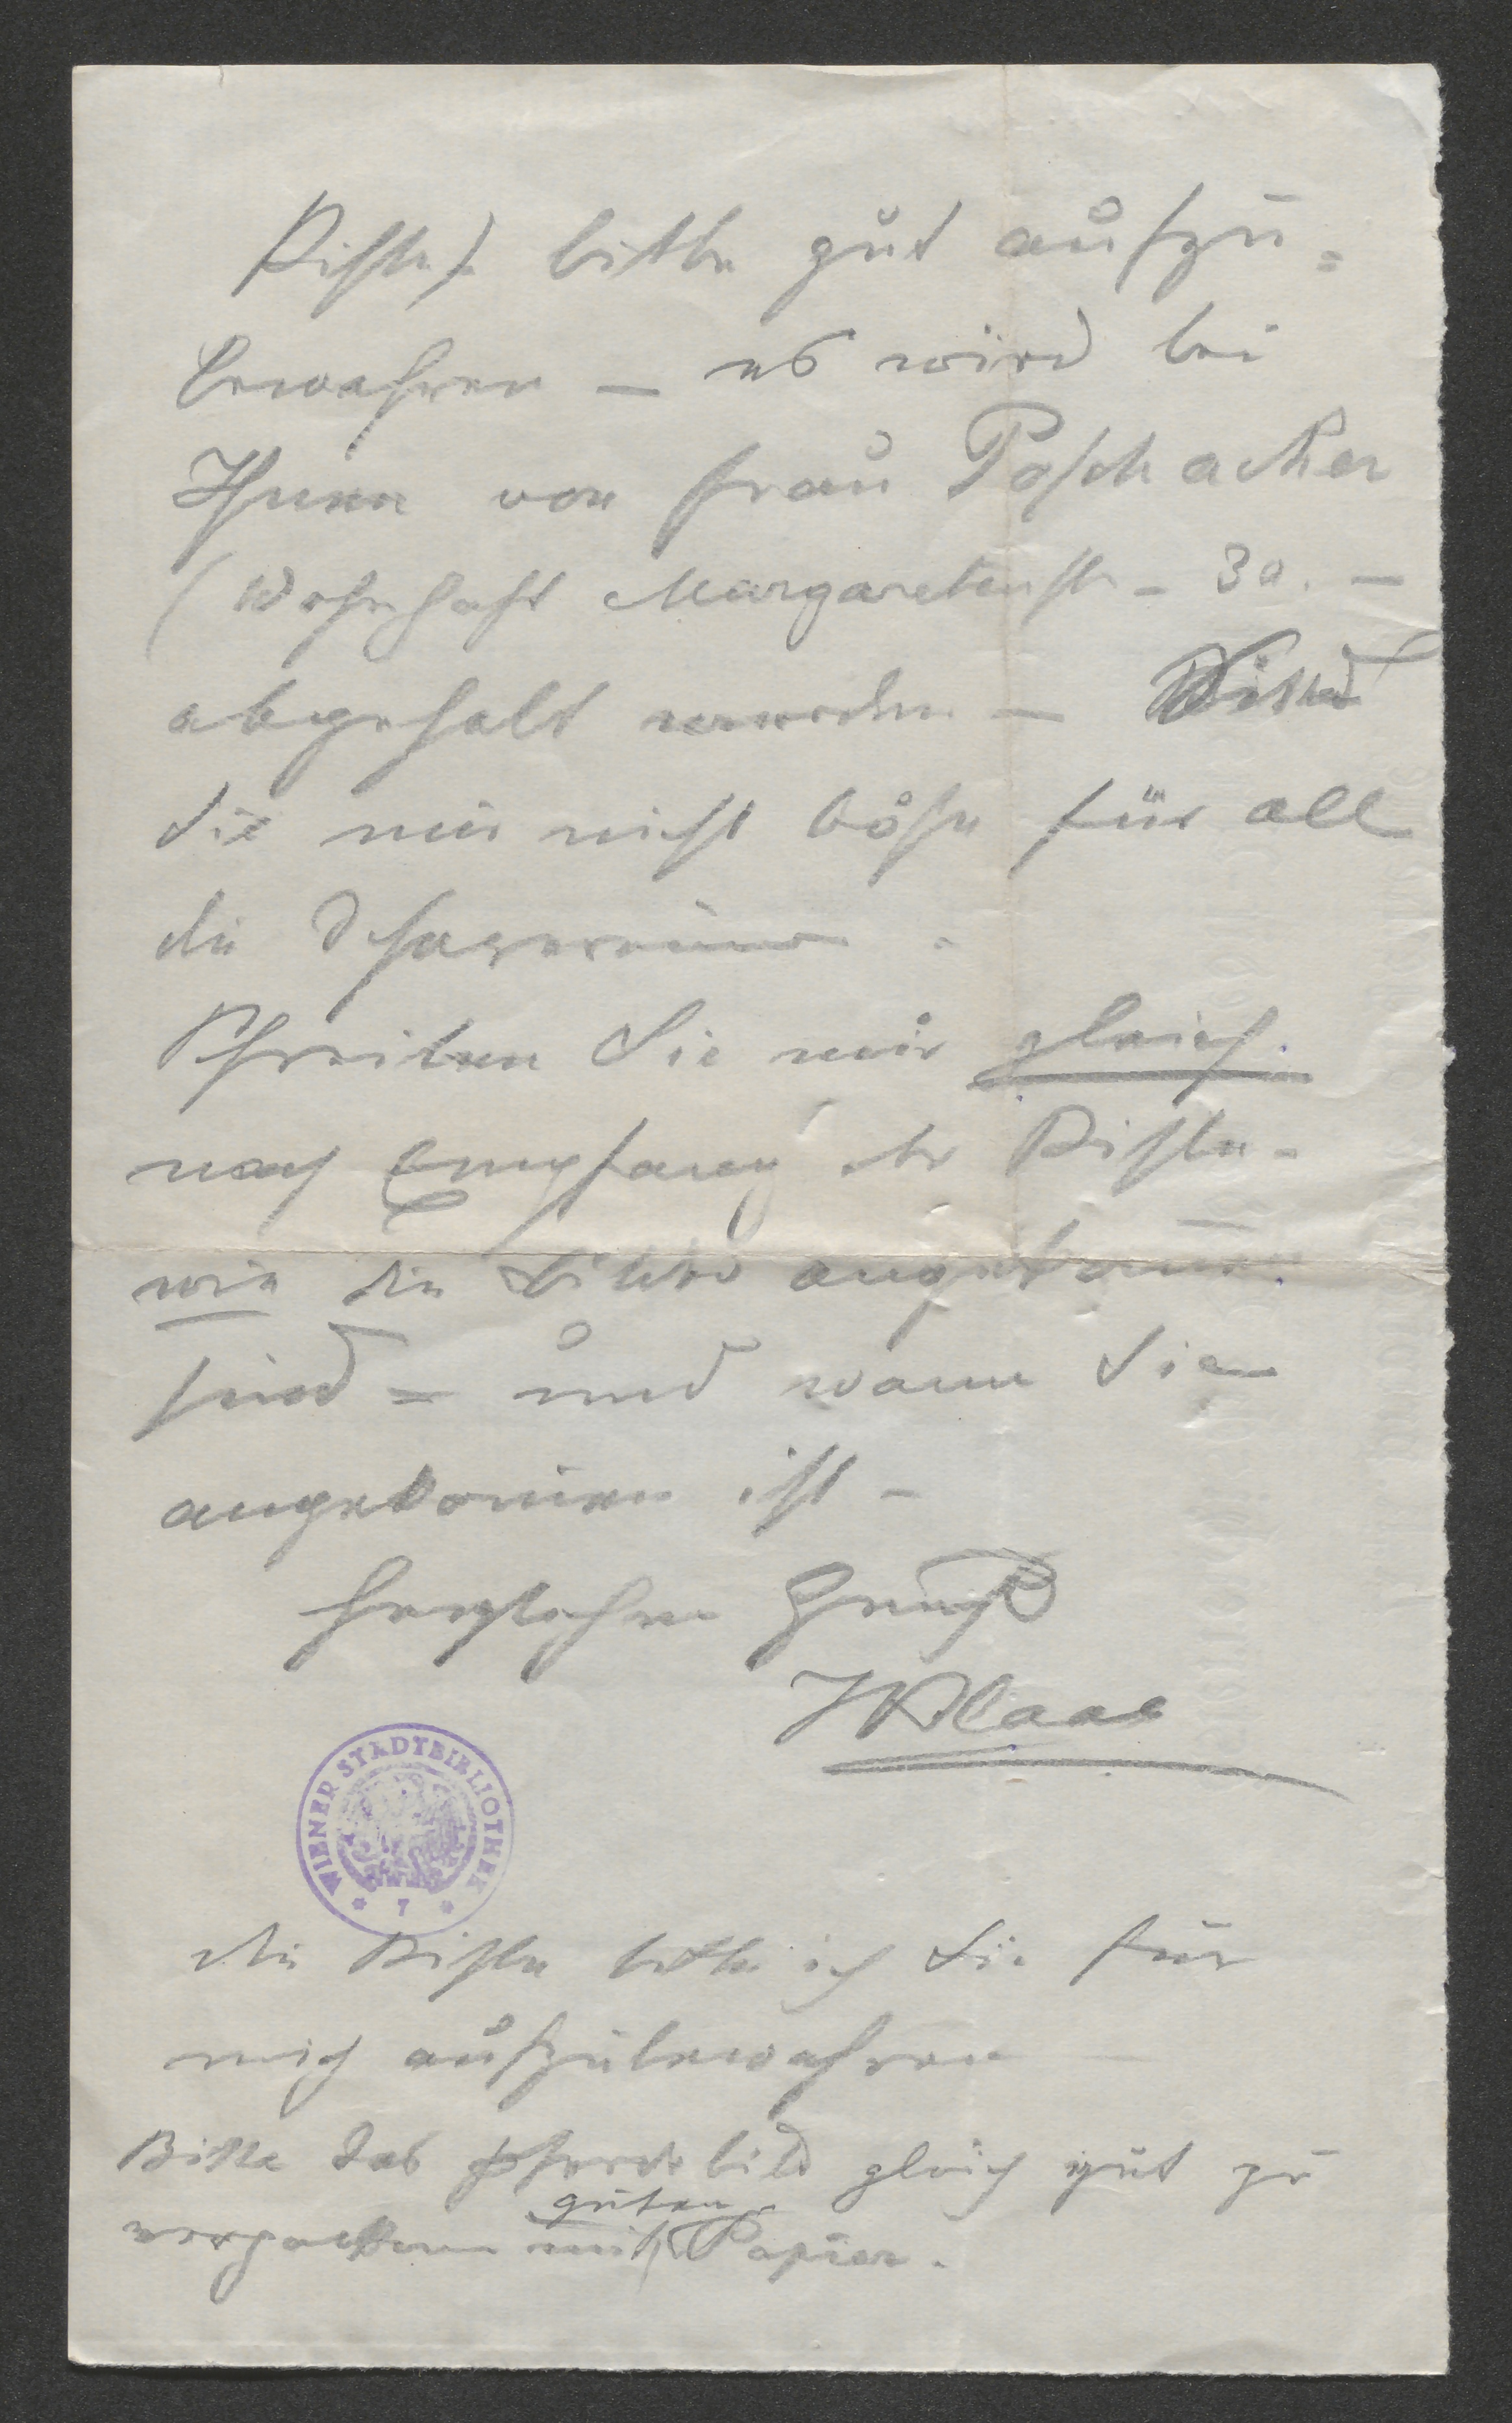 Kiste). bitte gut aufzu=
bewahren — es wird bei
Ihnen von Frau Poschacker
(wohnhaft Margaretenstr. 30. —
abgeholt werden —
Sie mir nicht böse für all
die Scherereien.
Schreiben Sie mir gleich
nach Empfang der Kiste.
wie die Bilder angekommen
sind — und wann Sie
angekommen ist —
Herzlichen Gruß
WIENER STADTBIBLIOTHEK
* 7 *
die Kiste bitte ich Sie für
mich aufzubewahren
Bitte das Pferdebild gleich gut zu
guten
verpacken mit Papier.